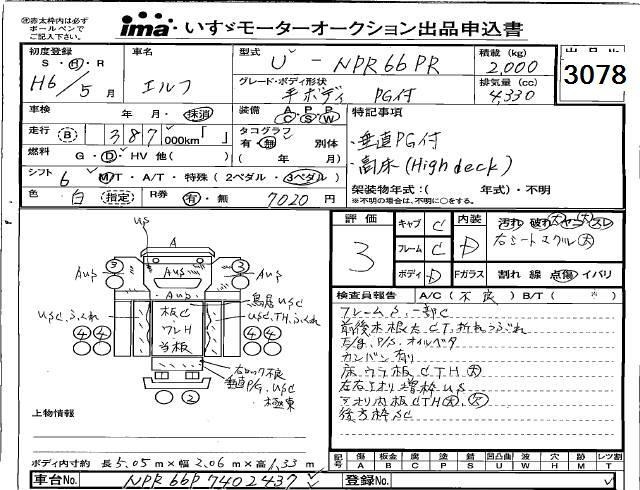 ※赤太枠内は必ず
ボールペンで
ご記入下さい。
ima いすゞモーターオークション出品申込書
初度登録 車名 型式 積載 (kg) 出品No
S・H・R エルフ U-NPR66PR 2,000 3078
H6/5月 グレード・ボディ形状 排気量 (cc)
平ボディ PG付 4,330
車検 年 月・抹消 装備 A P R C S W 特記事項
走行 B 387,000km「 」 タコグラフ 別体 有・無 ・垂直PG付
燃料 G・D・HV 他( ) ( 年 月) ・高床(High deck)
シフト 6 M/T・A/T・特殊(2ペダル・3ペダル) 架装物年式:( 年式)・不明
色 白 指定 R券 有・無 7020円 ※不明の場合は、不明に○をする。
評価 キャブ C 内装 汚れ 破れ大 大 スレ
3 フレーム C D 右シートマクル大
ボディ D Fガラス 割れ 線 点傷 イバリ
検査員報告 A/C(不良) B/T( * )
フレームS、一部C
カンバン有り
床ウラ板CTH大
左右アオリ増枠US
アオリ内板CTH大
後方枠SC
US
A
3 3
AUS AUS AUS
AUS
鳥居USC
USC、ふくれ USC,TH,ふくれ
板C
当板
4 4 4 4
右ロック不良
垂直PG,USC
2
上物情報
記号 傷 板金 腐 塗 錆 凹凸曲 波 穴 跡 レツ割
A B C P S U W H M T
ボディ内寸約 長5.05m×幅2.06m×高1.33m
車台No. NPR66P 7402437 登録No.